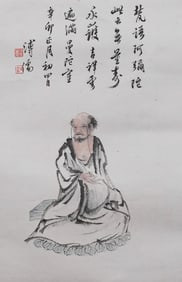 梵語阿彌陀
此云無量壽
永蔭吉祥雲
遍滿曼陀室
辛卯正月初四日
溥儒